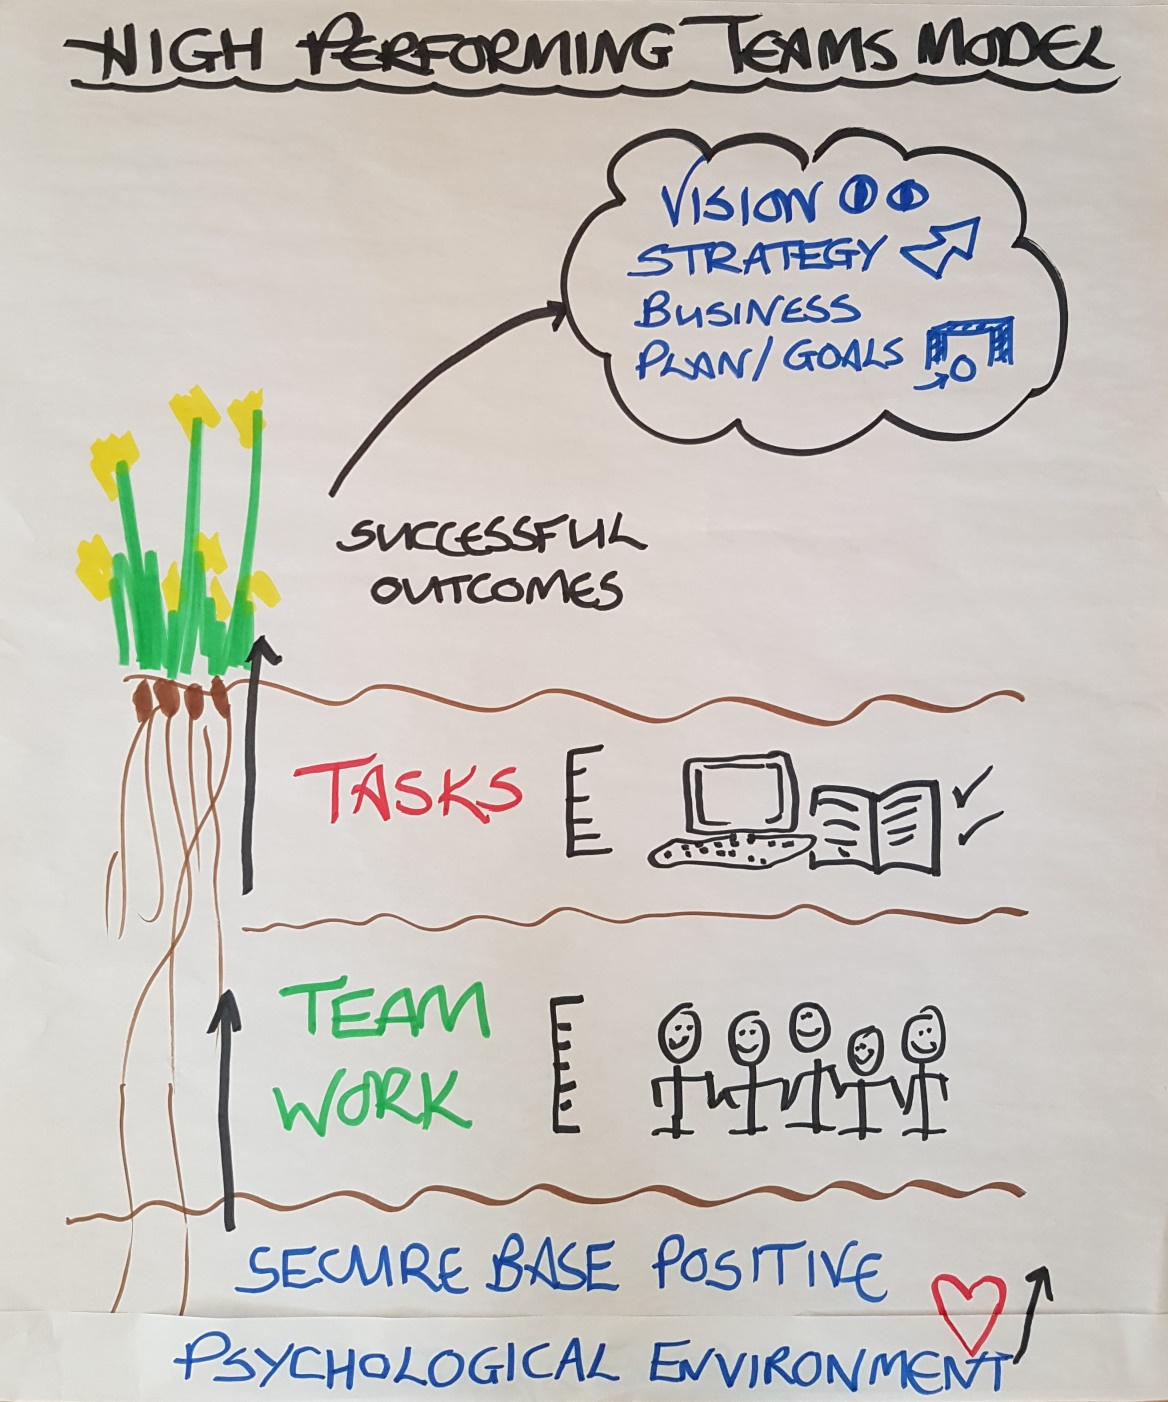 HIGH PERFORMING TEAMS MODEL
VISION
STRATEGY
BUSINESS
PLAN/GOALS
SUCCESSFUL
OUTCOMES
TASKS
TEAM
WORK
SECURE BASE POSITIVE
PSYCHOLOGICAL ENVIRONMENT